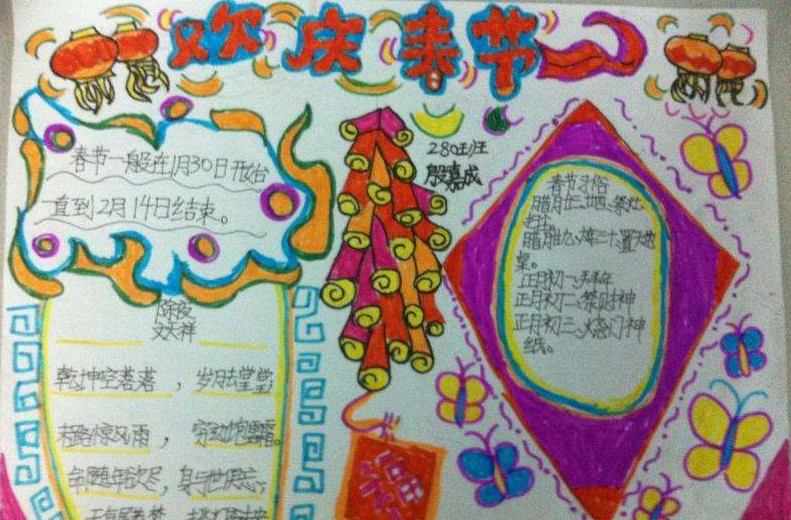 欢庆春节
春节一般在1月30日开始
一直到2月14日结束。
280班
殷嘉成
春节习俗
腊月廿三、廿四、祭灶
扫尘
腊月廿九、年三十、置天地
桌。
正月初一、拜年
正月初二、祭财神
正月初三、烧门神
纸。
除夜
文天祥
乾坤空落落,岁月去堂堂;
末路惊风雨,穷边饱雪霜。
命随年欲尽,身与世俱忘;
无复屠苏梦
福